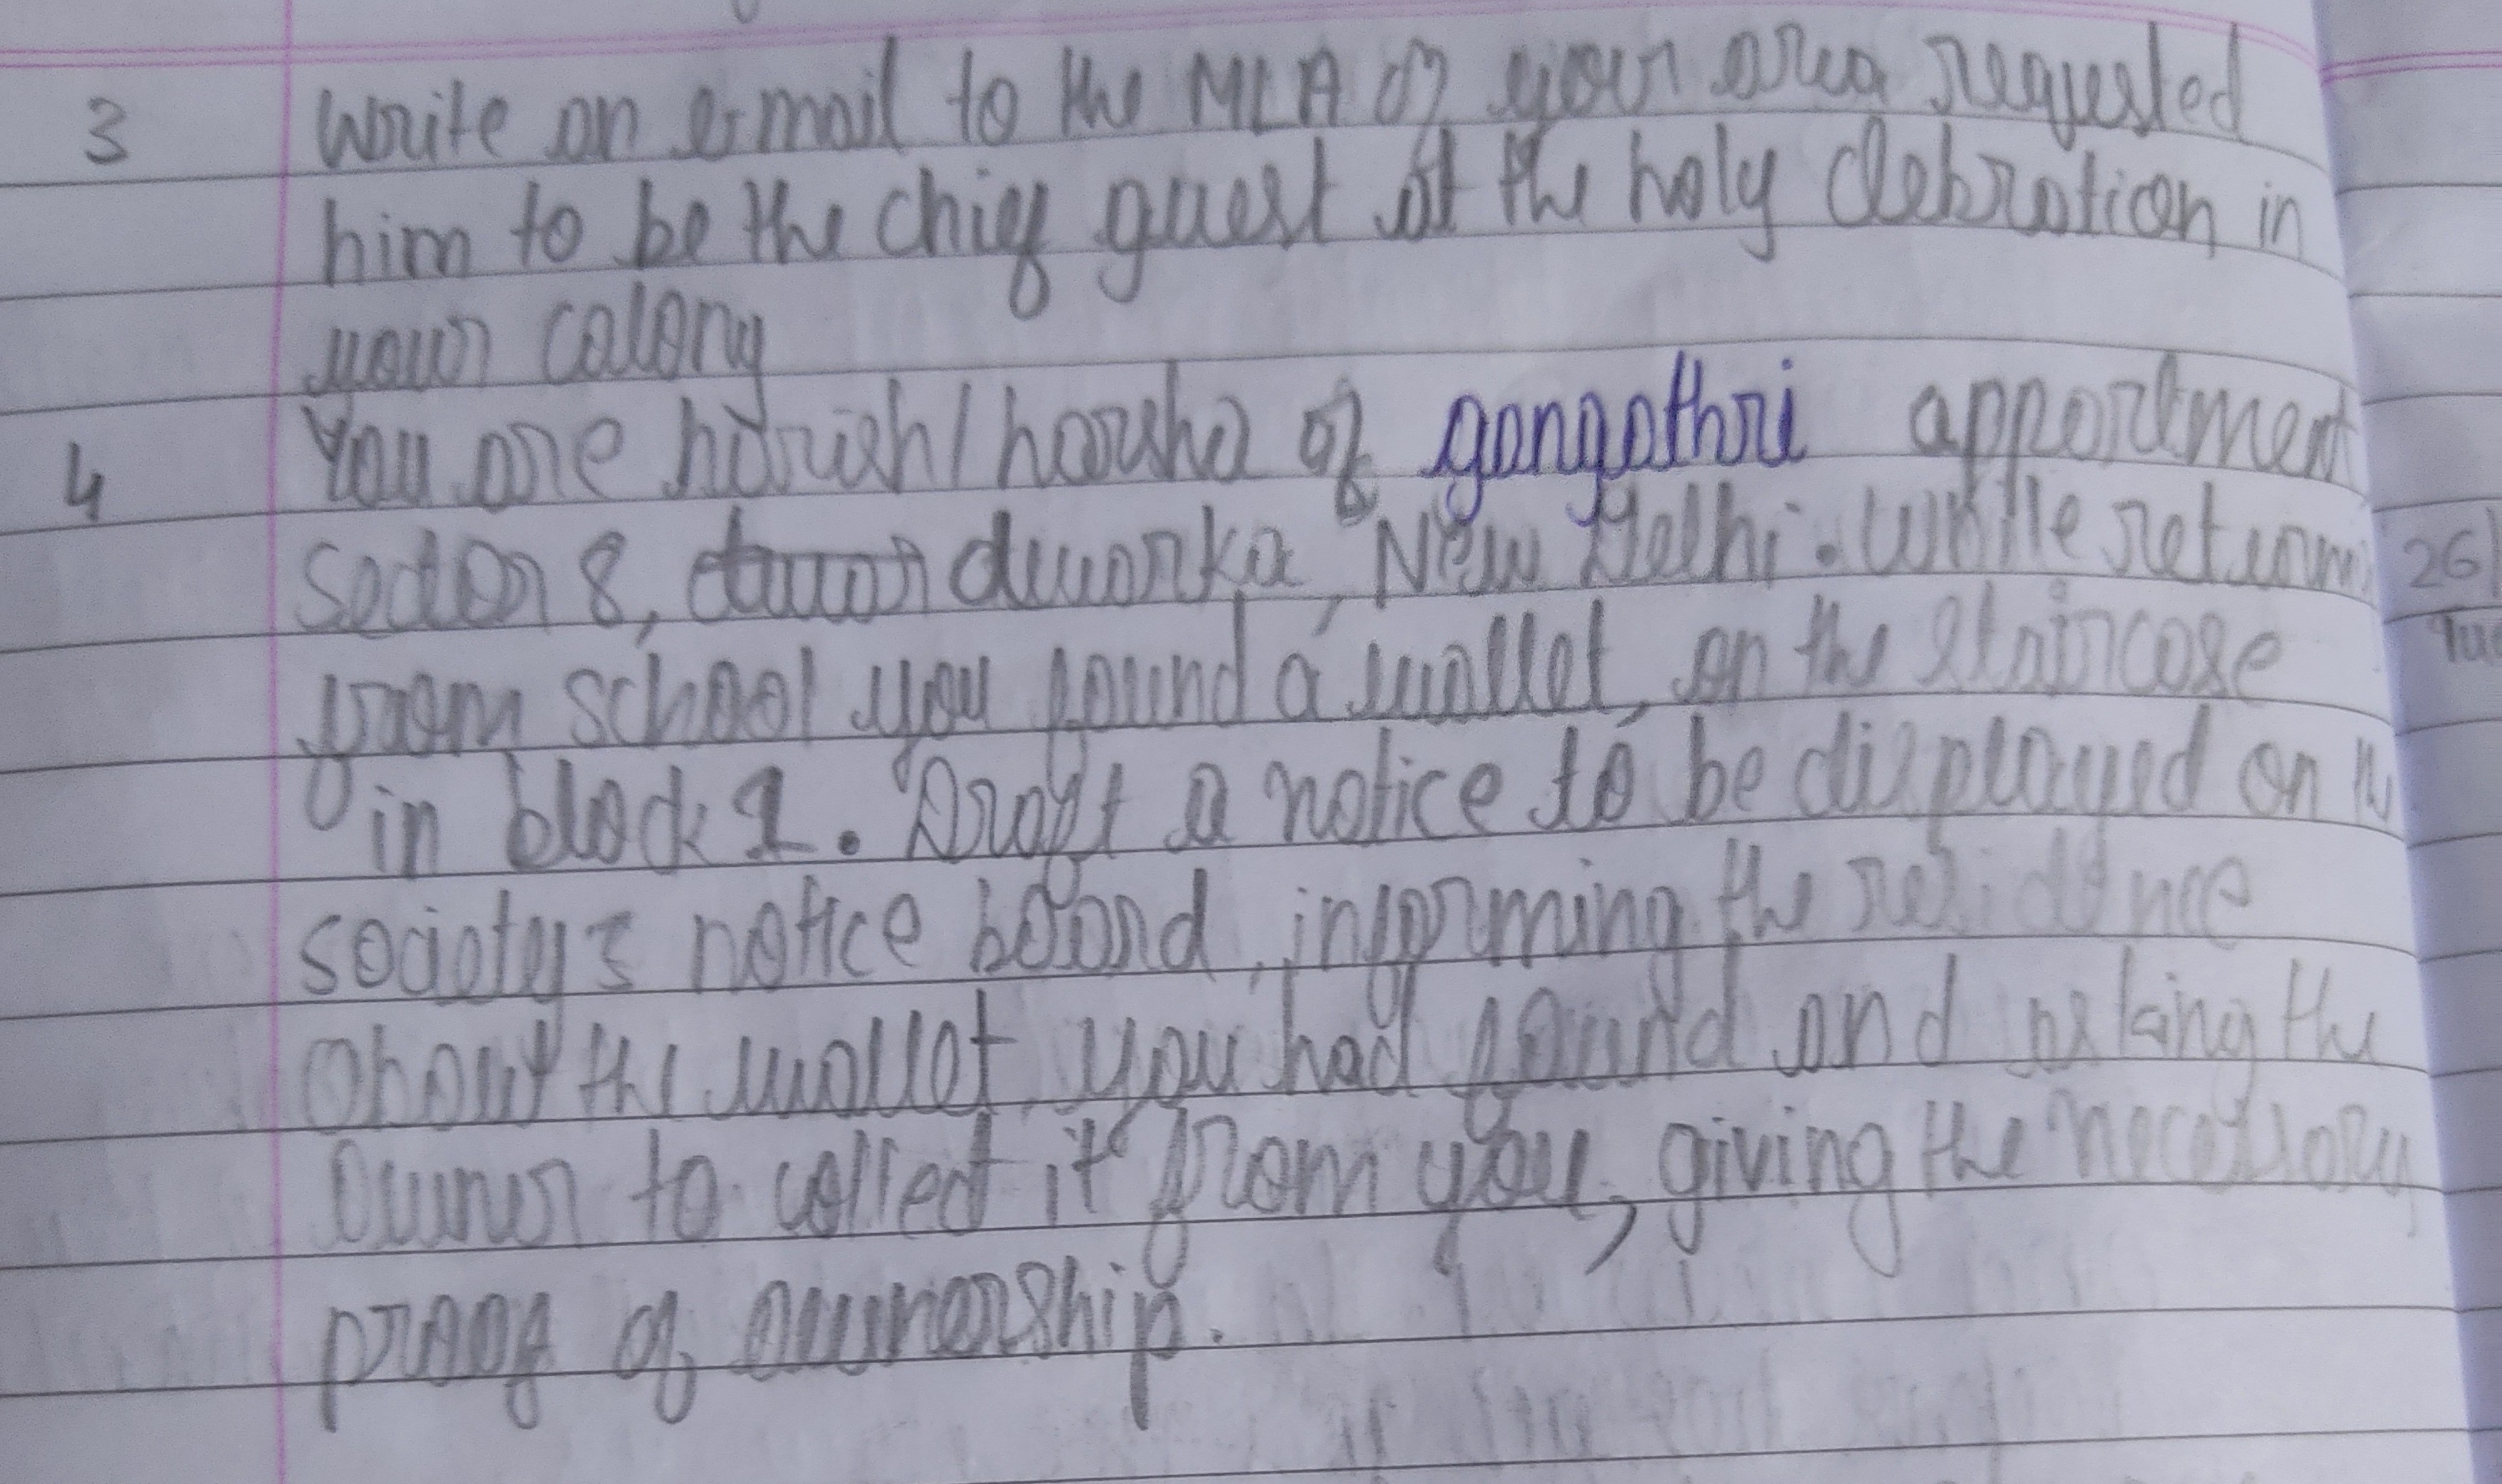 3 Write an e-mail to the MLA of your area requested
him to be the chief guest at the holy clebration in
your colony
4 You are harish/harsha of gangathri appartment
sector 8, dwarka, New Delhi. While return
from school you found a wallet, on the staircase
in block 1. Draft a notice to be displayed on the
society's notice board, informing the residence
about the wallet, you had found and asking the
owner to collect it from you, giving the necessary
proof of ownership.
26
Tue